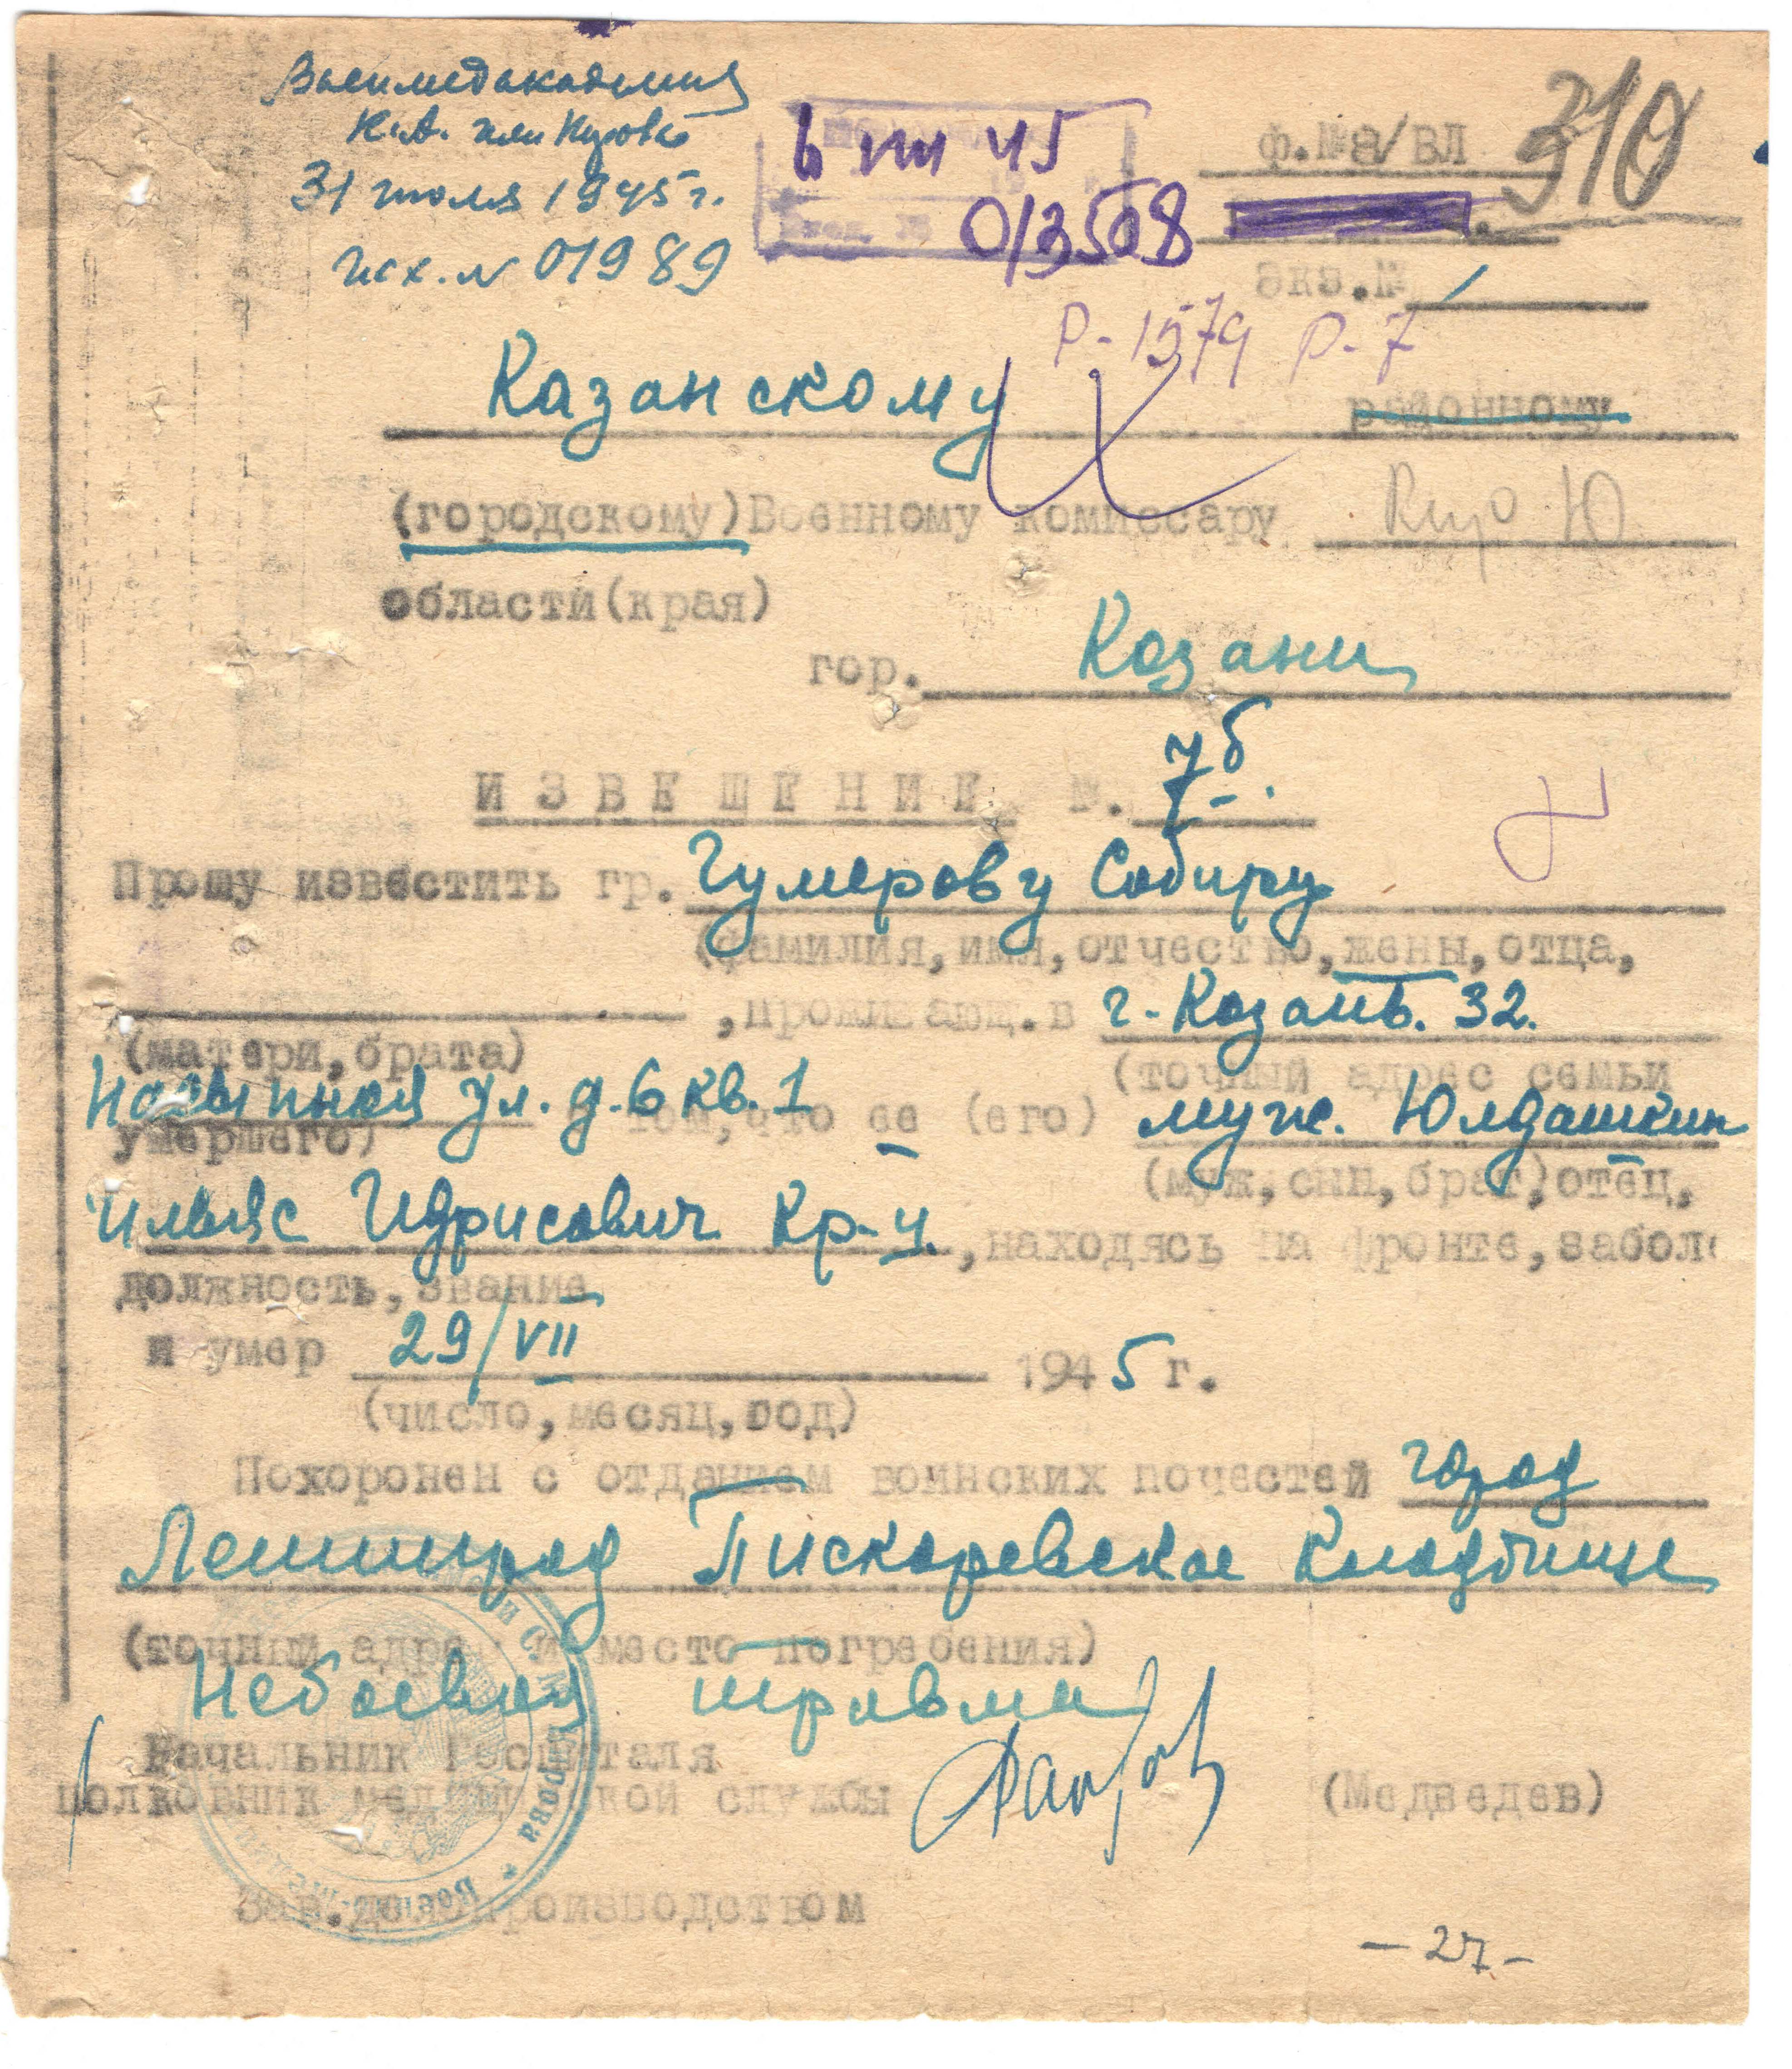 Военмедакадемия
К.А. им Кирова
31 июля 1945 г.
Исх. № 01989
6 VIII 45
Вход. №
0/3508
ф.№8/ВЛ
310
Экз.№ /
Р-1579 Р-7
Казанскому районному
(городскому) Военному комиссару
области(края)
гор. Казани
ИЗВЕЩЕНИЕ №. 7б.
Прошу известить гр. Гумерову Сабиру
(фамилия, имя, отчество, жены, отца,
, прожившающ. в г. Казань. 32.
(матери, брата)
(точный адрес семьи
Насыпная ул. д-6 кв. 1 том, что ее (его) муж. Юлдашкин
умершего)
(муж, сын, брат, отец,
Ильяс Идрисович Кр-ц., находясь на фронте, забол
должность, звание
и умер 29/VII 1945 г.
(число, месяц, год)
Похоронен с отданием воинских почестей город
Ленинград Пискаревское Кладбище
(точный адрес и место погребения)
Небоевая травма
Начальник Госпиталя
полковник медицинской службы (Медведев)
Зав. делопроизводством
-27-